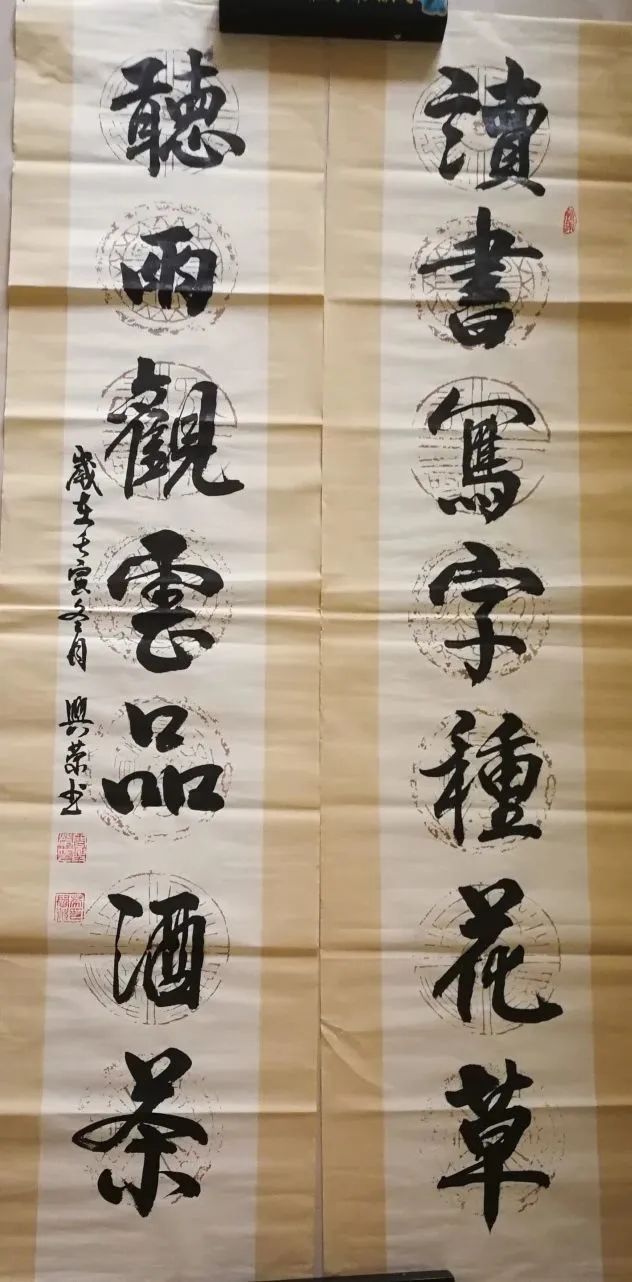 讀書寫字種花草
聽雨觀雲品酒茶
歲在壬寅冬月 興榮书